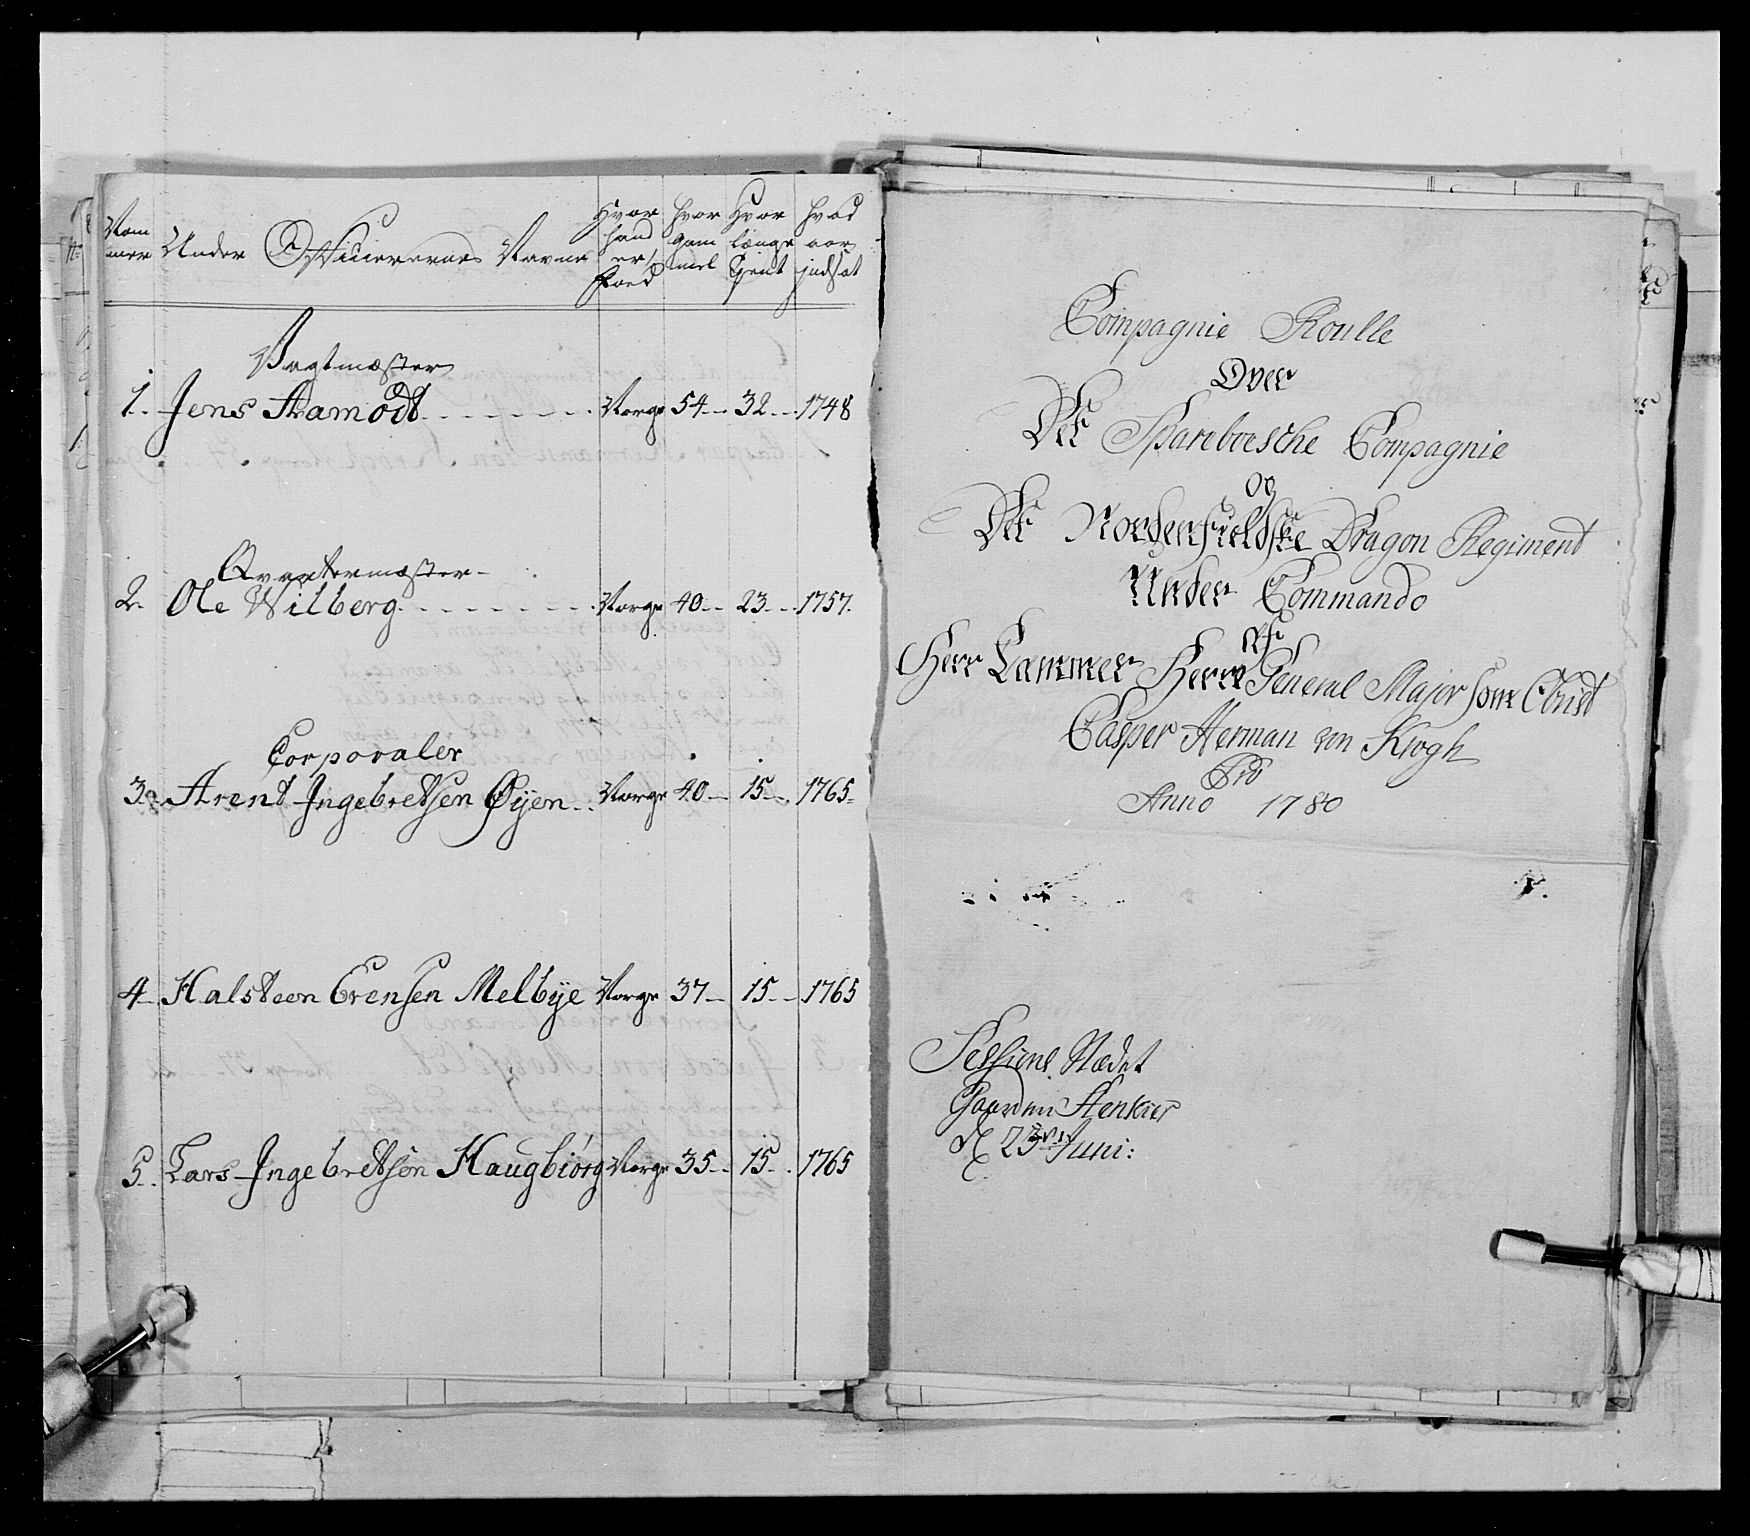 Nom mer
Under Officierernes Navne
Hvor hand er Föed
Hvor gam mel
Hvor længe tient
Hvad aar indsat
Vagtmæster
1. Jens Aamodt Norge 54 32 1748
Qvartermæster
2. Ole Wilberg Norge 40 23 1757.
Corporaler
3. Arent Ingebretsen Øyen Norge 40 15 1765
4 Halsteen Evensen Melbye Norge 37 15 1765
5. Lars Ingebretsön Haugbiörg Norge 35 15 1765
Compagnie Roulle
Over
Det Sparboesche Compagnie
og
Det Nordenfieldske Dragon Regiment
Under Commando
Af
Herr Cammer Herre General Major
Casper Herman von Krogh
Pro
Anno 1780
Sessions Stædet
Gaarden Stenkier
d 23de Juni: